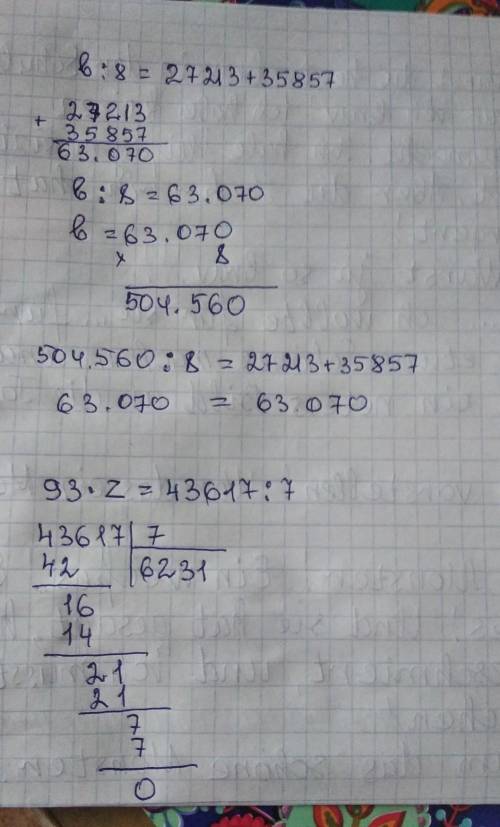 в : 8 = 27213 + 35857
+ 27213
35857
63.070
в : 8 = 63.070
в = 63.070
x 8
504.560
504.560 : 8 = 27213 + 35857
63.070 = 63.070
93 · z = 43617 : 7
43617 7
42 6231
16
14
21
21
7
7
0